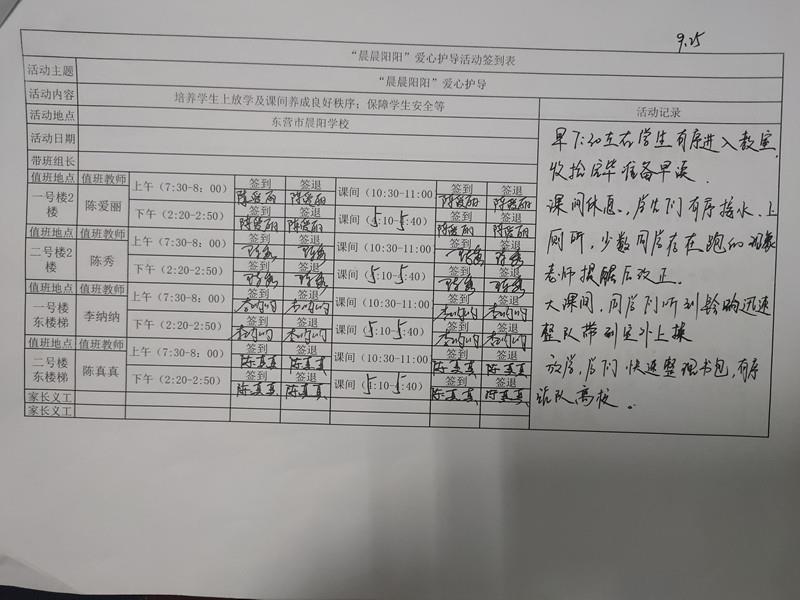 9.25
“晨晨阳阳”爱心护导活动签到表
活动主题 “晨晨阳阳”爱心护导
活动内容 培养学生上放学及课间养成良好秩序；保障学生安全等 活动记录
活动地点 东营市晨阳学校
活动日期
带班组长
值班地点 值班教师 上午（7:30-8：00） 签到 签退 课间（10:30-11:00） 签到 签退
一号楼2楼 陈爱丽 陈爱丽 陈爱丽 陈爱丽 陈爱丽
下午（2:20-2:50） 签到 签退 课间（5:10-5:40） 签到 签退
陈爱丽 陈爱丽 陈爱丽 陈爱丽
值班地点 值班教师 上午（7:30-8：00） 签到 签退 课间（10:30-11:00） 签到 签退
二号楼2楼 陈秀 陈秀 陈秀 陈秀 陈秀
下午（2:20-2:50） 签到 签退 课间（5:10-5:40） 签到 签退
陈秀 陈秀 陈秀 陈秀
值班地点 值班教师 上午（7:30-8：00） 签到 签退 课间（10:30-11:00） 签到 签退
一号楼东楼梯 李纳纳 李纳纳 李纳纳 李纳纳 李纳纳
下午（2:20-2:50） 签到 签退 课间（5:10-5:40） 签到 签退
李纳纳 李纳纳 李纳纳 李纳纳
值班地点 值班教师 上午（7:30-8：00） 签到 签退 课间（10:30-11:00） 签到 签退
二号楼东楼梯 陈真真 陈真真 陈真真 陈真真 陈真真
下午（2:20-2:50） 签到 签退 课间（5:10-5:40） 签到 签退
陈真真 陈真真 陈真真 陈真真
家长义工
家长义工
早7:20左右学生有序进入教室，
收拾完毕准备早读．
课间休息，学生们有序接水、上
厕所，少数同学存在跑的现象
老师提醒后改正．
大课间，同学们听到铃响迅速
整队带到室外上操
放学，学们快速整理书包，有序
站队离校。